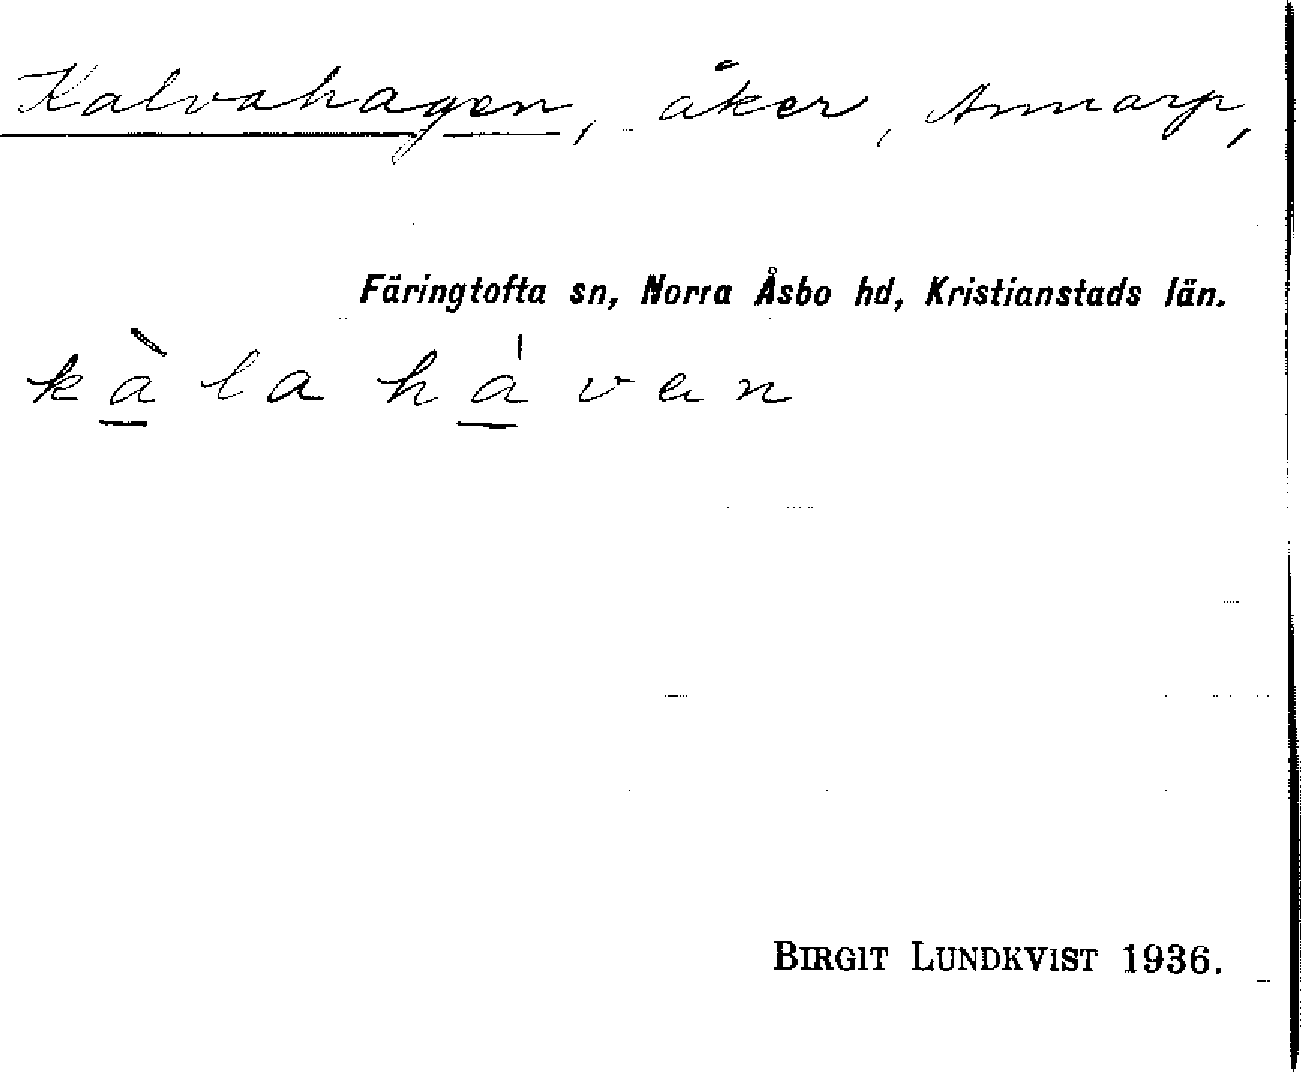 Kalvahagen, åker, Annarp,
Färingtofta sn, Norra Åsbo hd, Kristianstads län.
kàlahávan
BIRGIT LUNDKVIST 1936.